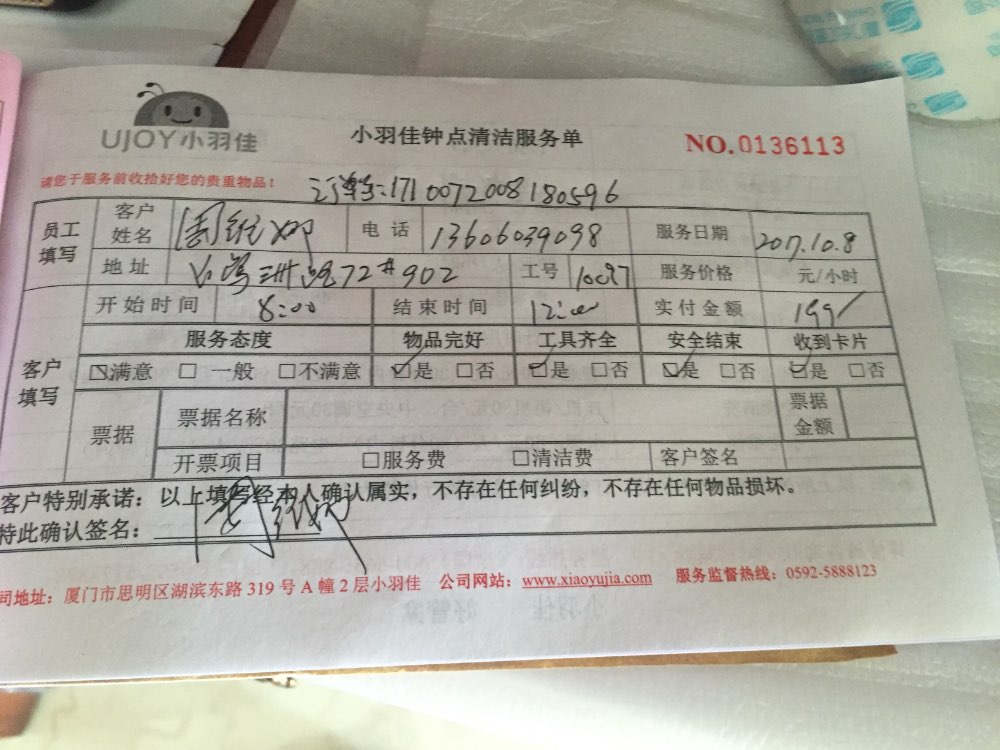 UJOY小羽佳
小羽佳钟点清洁服务单
NO.0136113
请您于服务前收拾好您的贵重物品！
订单号:1710072008180596
员工填写 客户姓名 周维娜 电话 13606039098 服务日期 2017.10.8
地址 洲路72#902 工号 服务价格 元/小时
客户填写 开始时间 8:00 结束时间 12:00 实付金额 199
服务态度 物品完好 工具齐全 安全结束 收到卡片
☑满意 □一般 □不满意 ☑是 □否 ☑是 □否 ☑是 □否 ☑是 □否
票据 票据名称 票据金额
开票项目 □服务费 □清洁费 客户签名
客户特别承诺：以上填写经本人确认属实，不存在任何纠纷，不存在任何物品损坏。
特此确认签名：周维娜
司地址：厦门市思明区湖滨东路 319 号 A 幢 2 层小羽佳 公司网站：www.xiaoyujia.com 服务监督热线：0592-5888123